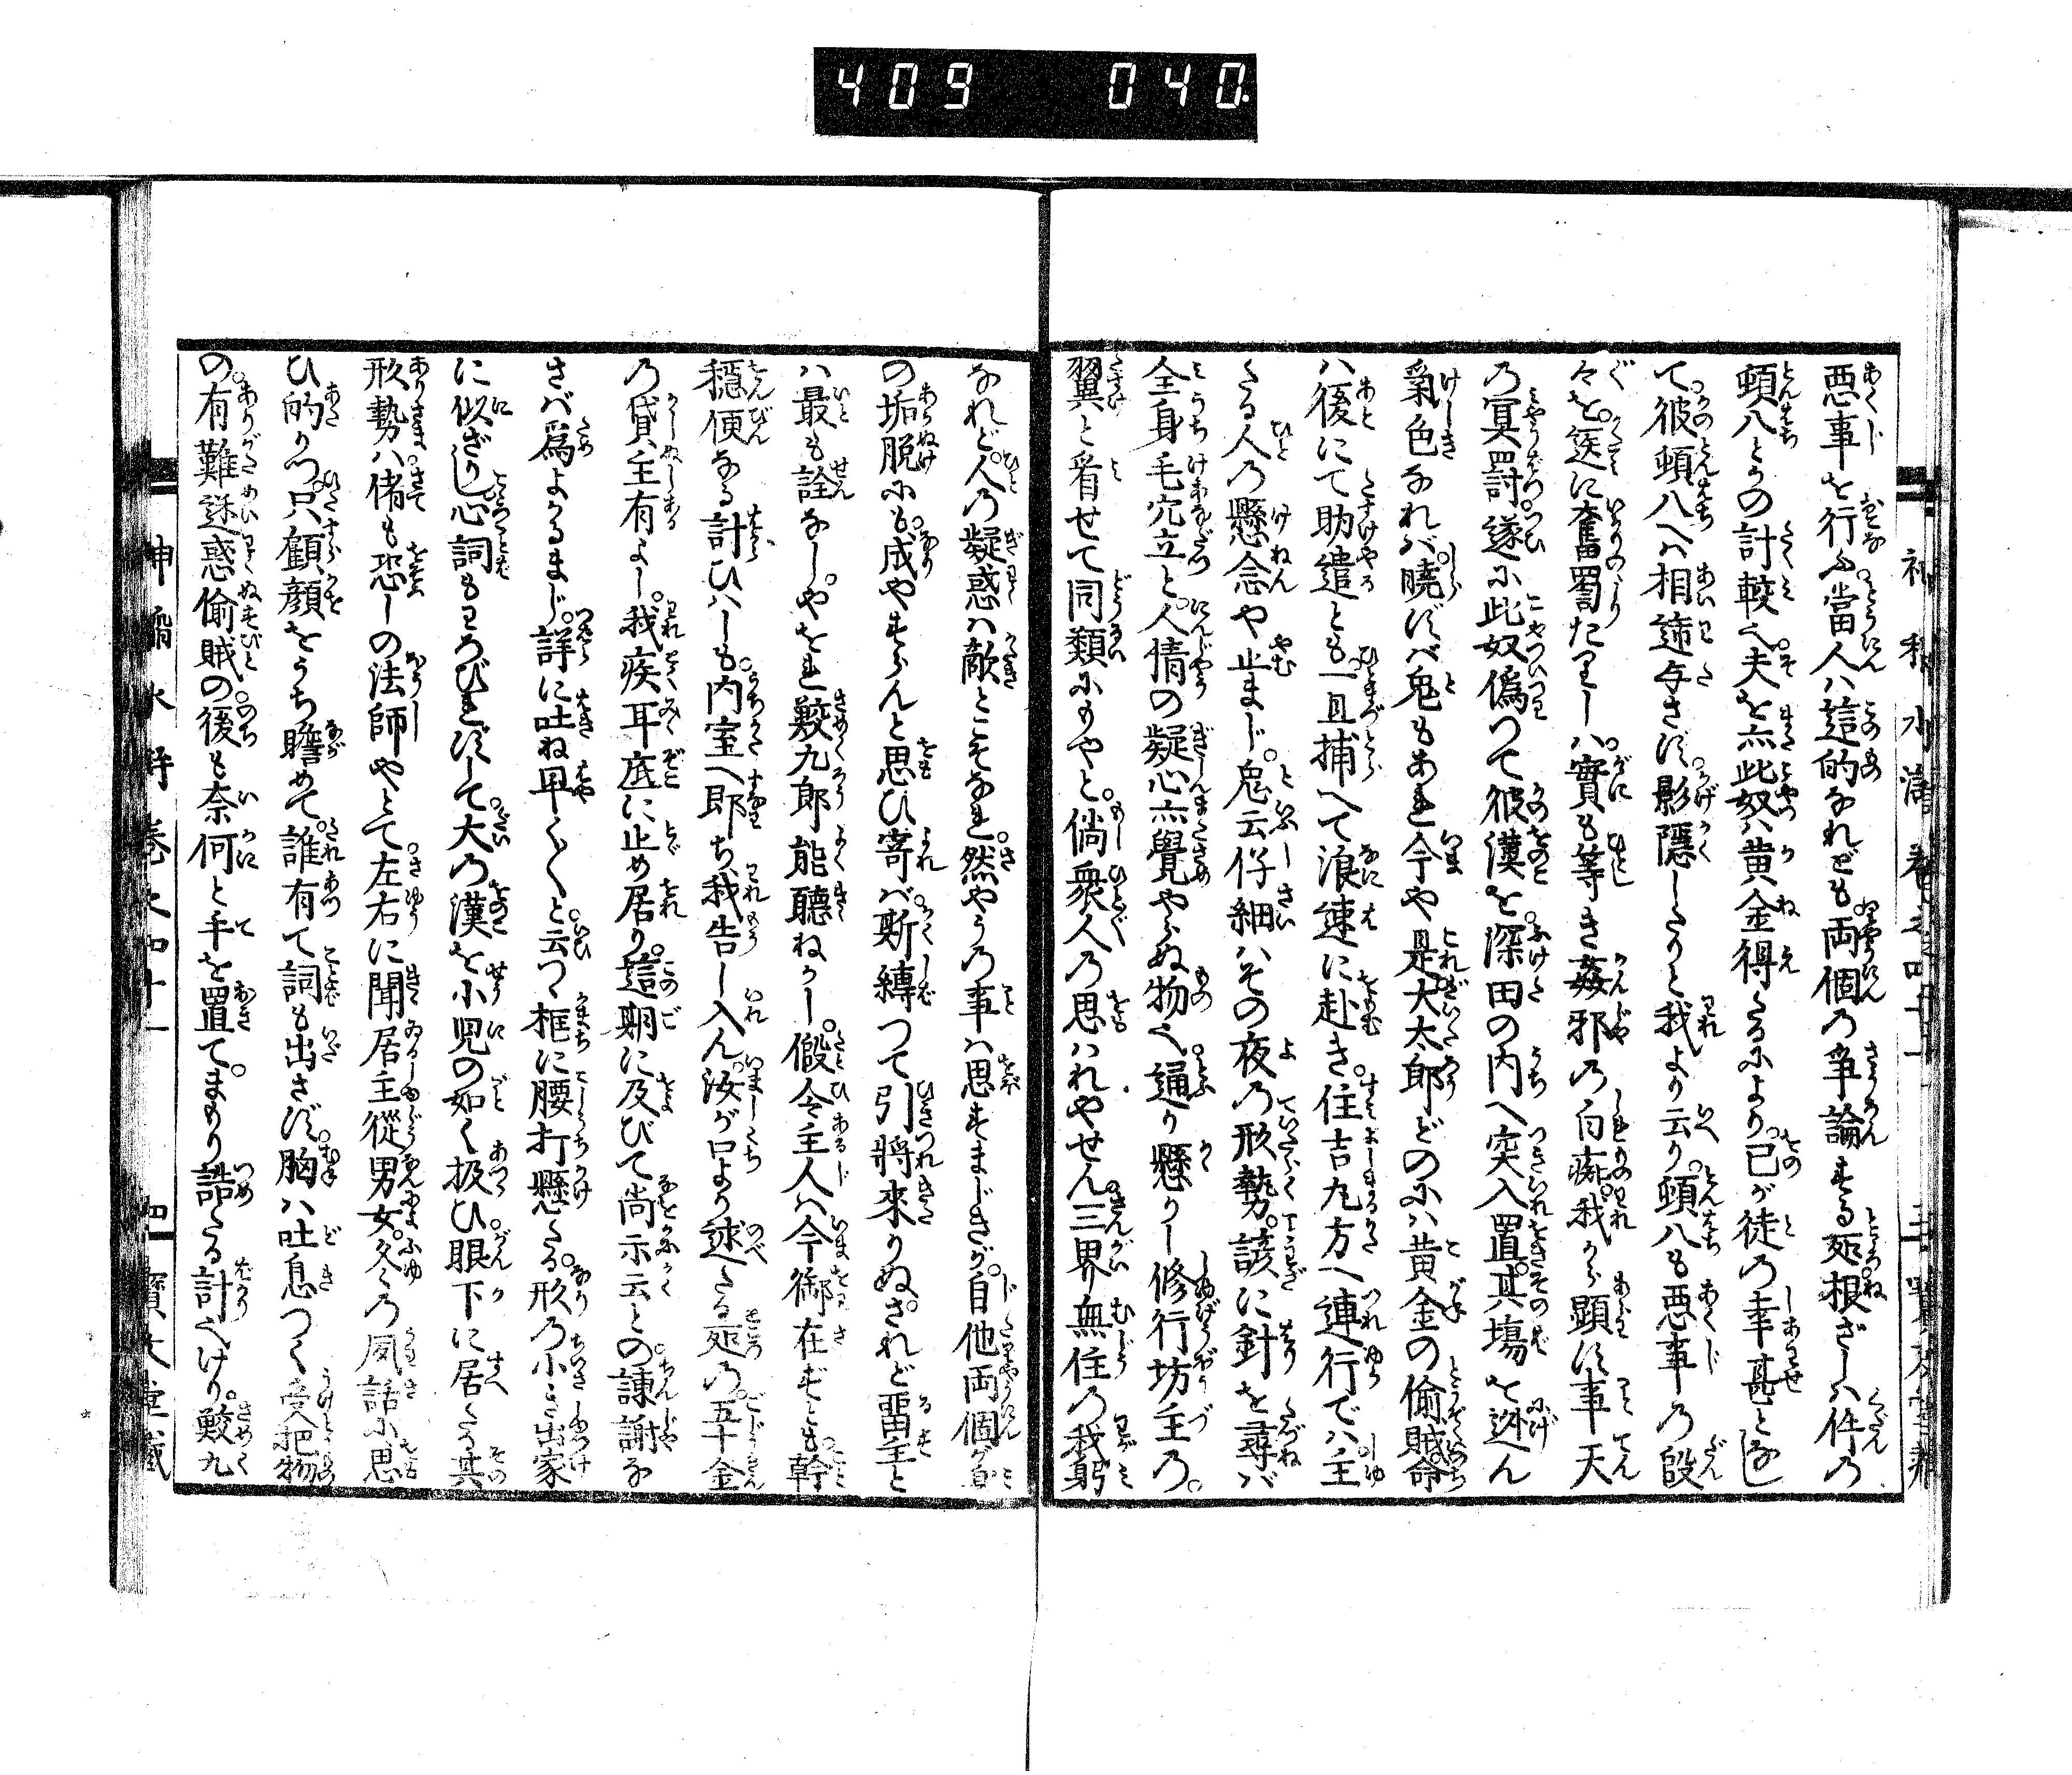 409 040
悪事を行ふ。當人ハ這的なれども両個乃争論する。処根ざしハ件乃
頓八とかの計較也。夫を亦此奴ハ黄金得たるにより。己が徒乃幸甚となし
て彼頓八へハ相渉与さず。影隠したりと我より云り。頓八も悪事乃段
々を。迭に奮罰たりしハ。實も等き姦邪乃白痴。我から顕はす事天
乃冥罰。遂に此奴偽つて彼漢を。深田の内へ突入置。其塲を迯ん
氣色なれバ。曉ずバ鬼もあれ今や是。大太郎どのにハ黄金の偸賊。命
ハ後にて助遣とも。一旦捕へて浪速に赴き。住吉九方へ連行でハ主
たる人乃懸念や止まじ。鬼云仔細ハその夜乃形勢。諺に針を尋バ
全身毛穴立と。人情の疑心亦覺やらぬ物也。通り懸りし修行坊主乃。
翼と看せて同類にもやと。倘衆人乃思ハれやせん。三界無住乃我躬
なれど。人乃疑惑ハ敵とこそなれ。然やう乃事ハ思すまじきが。自他両個が身
の垢脱にも。成やすらんと思ひ寄バ。斯縛つて引將來りぬ。されど畱主と
ハ最も詮なし。やをれ鮫九郎能聽ねかし。假令主人ハ今御在ずとも。幹
穏便なる計ひハしも。内室へ即ち我告し入ん。汝が口より述たる処乃。五十金
乃貸主有よし。我疾耳底に止め居り。這期に及びて尚示云との諌謝な
さバ爲よかるまじ。詳に吐ね早く〱と。云つゝ框に腰打懸たる。形乃小き出家
に似ざりし心詞もわろびれずして。大乃漢を小児の如く扱ひ。眼下に居たる其
形勢ハ。偖も恐しの法師やとて。左右に聞居主從男女。冬乃夙話に思
ひ的りつ。只顧顔をうち瞻めて。誰有て詞も出さず。胸ハ吐息つく受把物
の。有難迷惑偸賊の。後も奈何と手を置て。まもり詰たる計也けり。鮫九
神稲水滸 巻之四十一 三 寶文堂藏
神稲水滸 巻之四十一 四 寶文堂藏